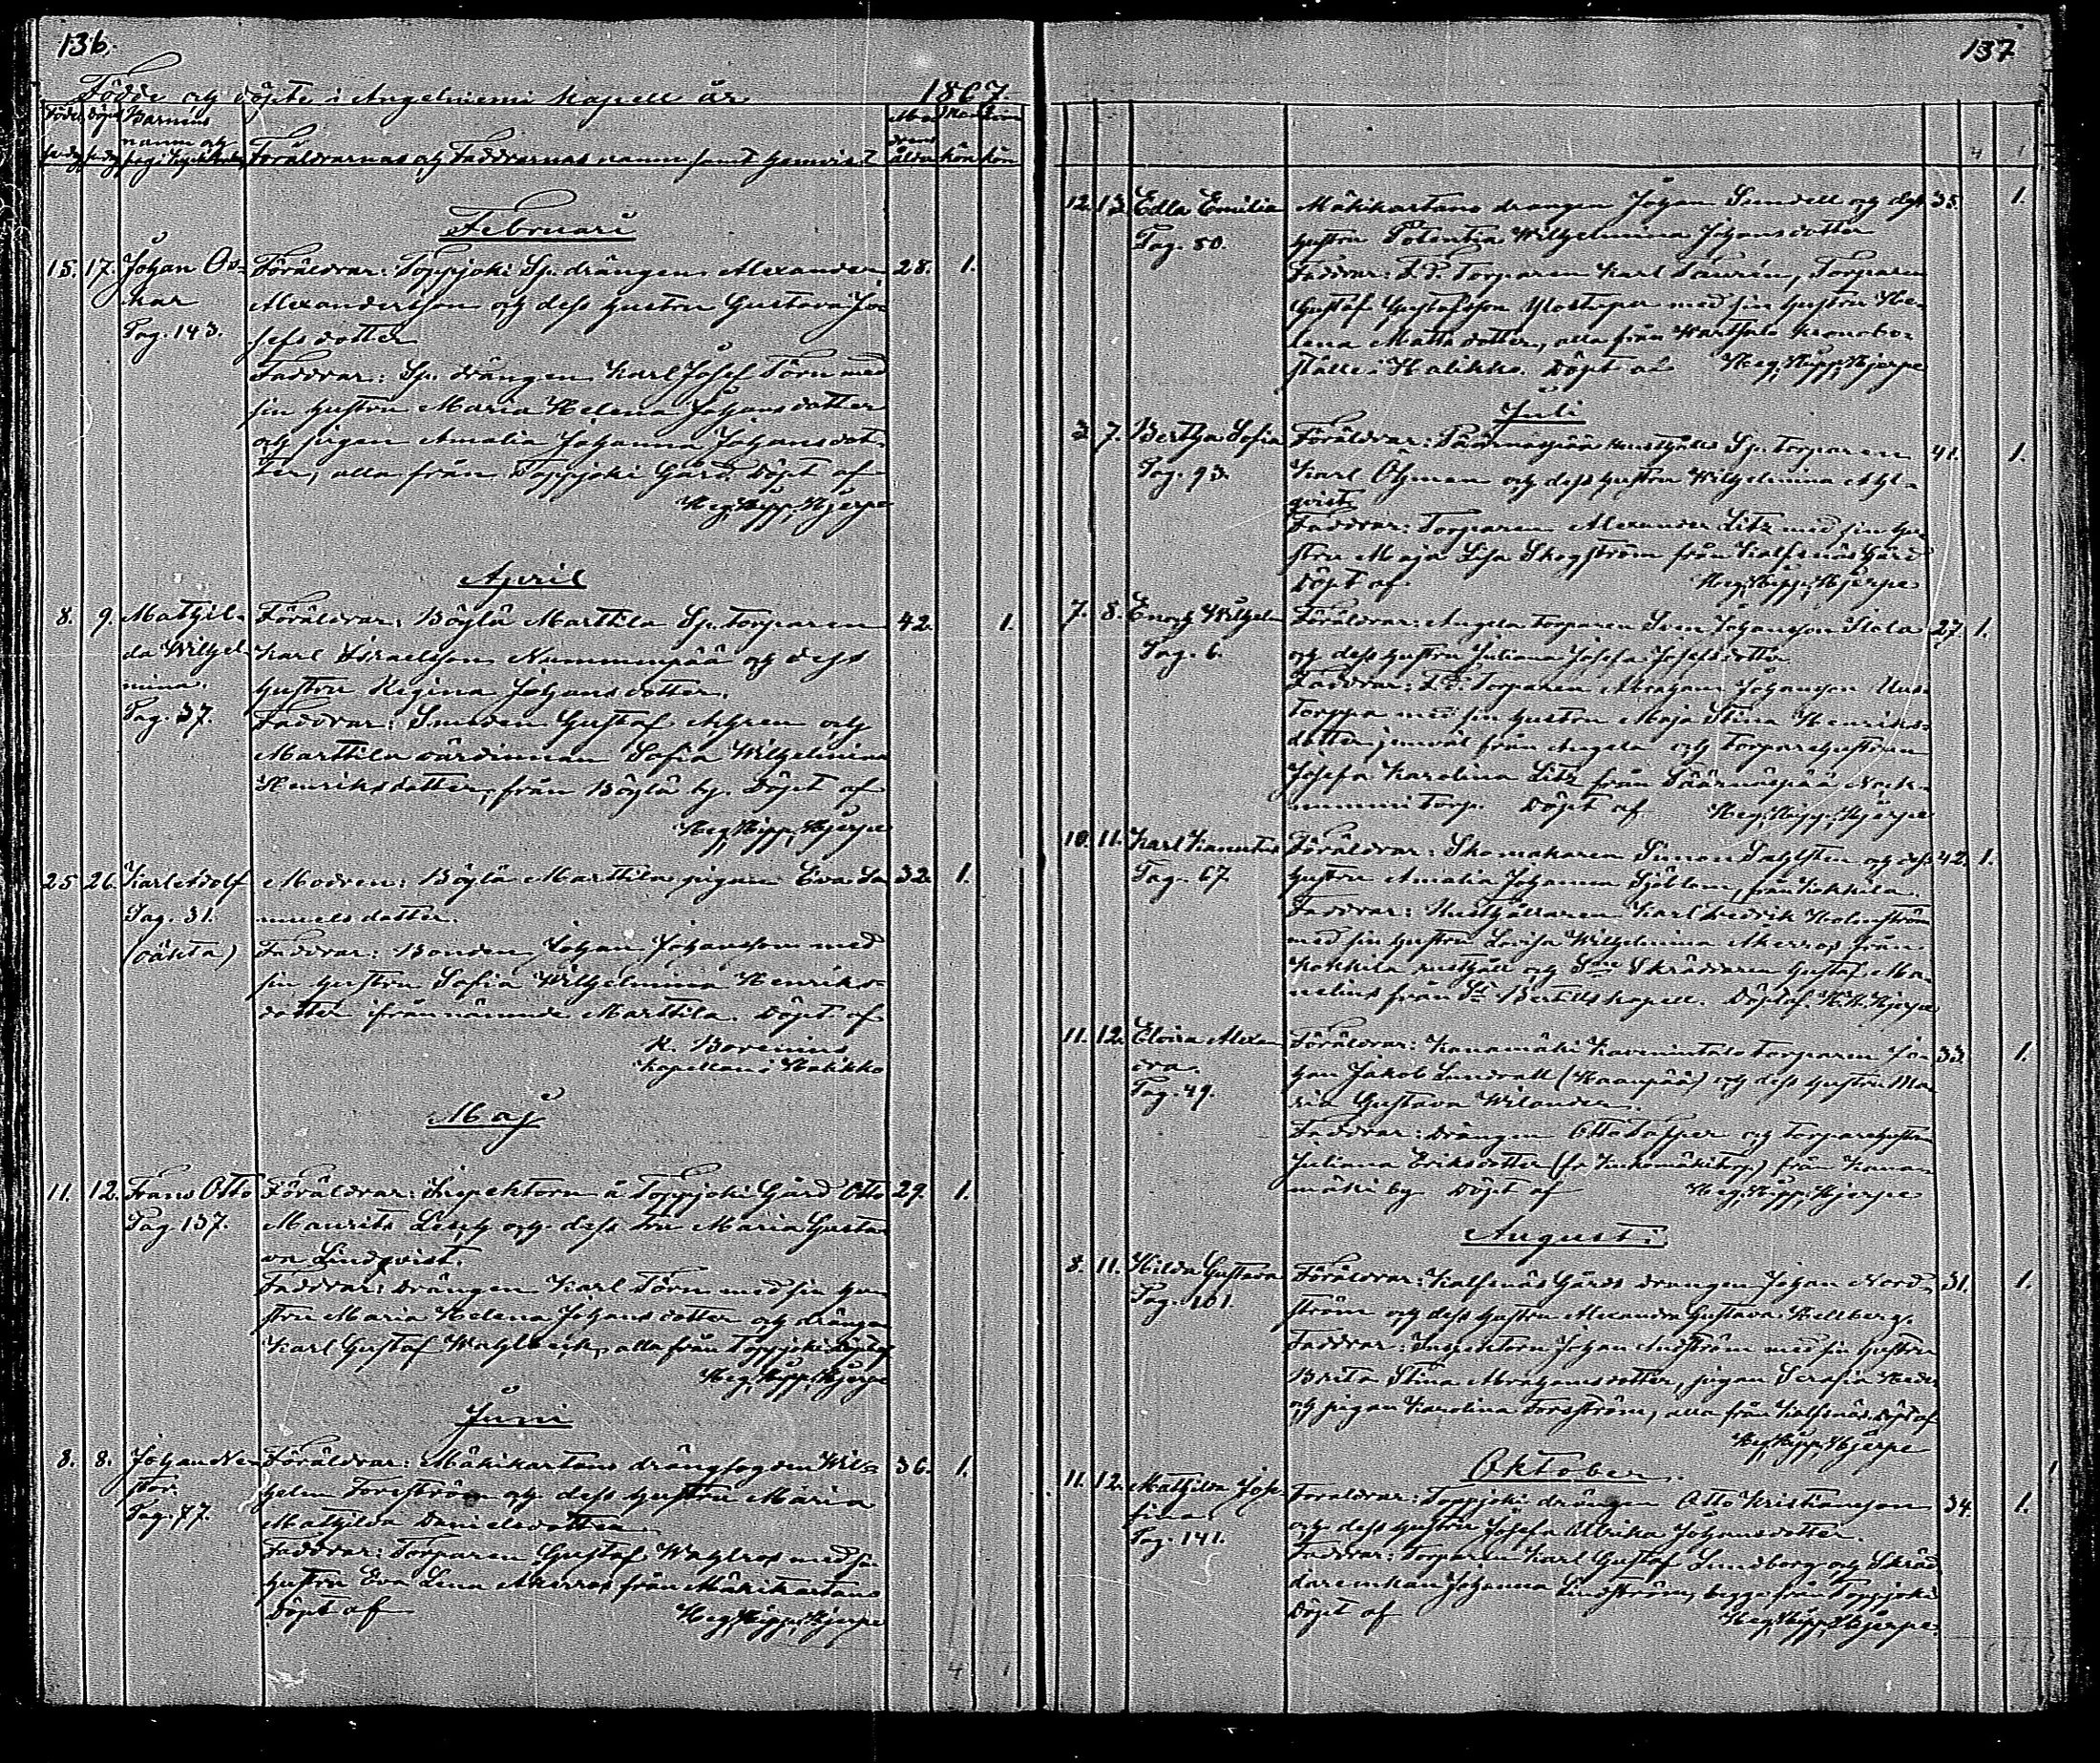 136.
Födde och döpte i Angelniemi Kapell år 1867
Födde Döpte Barnens Mo- Man Qvin
namn och drens
Föräldrarnas och Faddrarnas namn samt hemvist ålder kön kön
Februari
15. 17. Johan Os- Föräldrar: Toppjoki Sp. drängen Alexander 28. 1.
kar Alexandersson och dess hustru Gustava Jo-
Pag. 143. sefsdotter
Faddrar: Sp. drängen Karl Josef Törn med
sin hustru Maria Helena Johansdotter
och pigan Amalia Johanna Johansdot-
ter, alla från Toppjoki Gård. Döpt af
Hjerpe
April
8. 9. Mathil- Föräldrar: Böylä Marttila Sp. torparen 42. 1.
da Wilhel- Karl Israelsson Nummenpää och dess
mina. hustru Regina Johansdotter.
Pag. 37. Faddrar: Smeden Gustaf och
Marttila värdinnan Sofia Wilhelmina
Henriksdotter, från Böylä by. Döpt af
Hjerpe
25 26. Karl Adolf Modren: Böylä Marttila pigan Eva Sa- 32. 1.
Pag. 31. muelsdotter.
(oäkta) Faddrar: Bonden Johan Johansson med
sin hustru Sofia Wilhelmina Henriks-
dotter ifrån nämnde Marttila. Döpt af
K. Borenius
Kapellan i Halikko
Maj
11. 12. Frans Otto Föräldrar: Inspektorn å Toppjoki Gård Otto 29. 1.
Pag. 137. Maurits och dess fru Maria Gusta-
va Lindqvist.
Faddrar: Drängen Karl Törn med sin hu-
stru Maria Helena Johansdotter och drängen
Karl Gustaf Wahlbeck, alla från Toppjoki. Döpt af
Hjerpe
Juni
8. 8. Johan Ne- Föräldrar: Mäkikartano drängfogden Wil- 36. 1.
stor. helm Forsström och dess hustru Maria
Pag. 77. Mathilda Danielsdotter
Faddrar: Torparen Gustaf Wahlros med sin
hustru Eva Lena Åkerros från Mäkikartano
Döpt af Hjerpe
4 1
137
4 1
12. 13. Edla Emilia Mäkikartano drängen Johan Sundell och dess 35. 1.
Pag. 80. hustru Potentia Wilhelmina Johansdotter
Faddrar: Torparen Karl Laurén, Torparen
Gustaf Gustafsson Ylostapa med sin hustru He-
lena Mattsdotter, alla från Wartsala Kronobo-
ställe i Halikko. Döpt af Hjerpe
Juli
3. 7. Bertha Sofia Föräldrar: Päärnäspää Rusthålls Sp. torparen 41. 1.
Pag. 93. Karl Öhman och dess hustru Wilhelmina Ahl-
qvist
Faddrar: Torparen Alexander Litz med sin hu-
stru Maja Lisa Skogström från Kalfsnäs Gård
Döpt af Hjerpe
7. 8. Enoch Wilhelm Föräldrar: Angela torparen Sven Johansson Stola 27. 1.
Pag. 6. och dess hustru Juliana Josefa Josefsdotter
Faddrar: Torparen Abraham Johansson Uusi-
torppa med sin hustru Maja Stina Henriks-
dotter jemväl från Angela och torparehustrun
Josefa Karolina Litz från Päärnäspää
torp. Döpt af Hjerpe
10. 11. Karl Föräldrar: Skomakaren Simon Sahlsten och dess 42. 1.
Pag. 67 hustru Amalia Johanna Sjöblom, från Kokkila.
Faddrar: Rusthållaren Karl Fredrik Holmström
med sin hustru Lovisa Wilhelmina Åkerros från
Kokkila rusthåll och Skräddaren Gustaf Ma-
nelius från St Bertils kapell. Döpt af H. H. Hjerpe
11. 12. Elvira Alexan- Föräldrar: Kanamäki torparen Jo- 33. 1.
dra. han Jakob Lundvall (Haanpää) och dess hustru Ma-
Pag. 49. ria Gustava Wilander.
Faddrar: Drängen Otto och torparehustrun
Juliana Eriksdotter (fr Kukomäki torp) från Kana-
mäki by Döpt af Hjerpe
Augusti
8. 11. Hilda Gustava Föräldrar: Kalfsnäs Gårds drängen Johan Nord- 31. 1.
Pag. 101. ström och dess hustru Alexandra Gustava Hellberg.
Faddrar: Inspektorn Johan med sin hustru
Brita Stina Abrahamsdotter, pigan Serafia
och pigan Karolina Forsström, alla från Kalfsnäs. Döpt af
Hjerpe
Oktober.
11. 12. Mathilda Jose- Föräldrar: Toppjoki drängen Otto Kristiansson 34. 1.
fina och dess hustru Josefa Ulrika Johansdotter.
Pag. 141. Faddrar: Torparen Karl Gustaf Sundborg och Skräd-
darenkan Johanna Lindström, begge från Toppjoki
Döpt af Hjerpe.